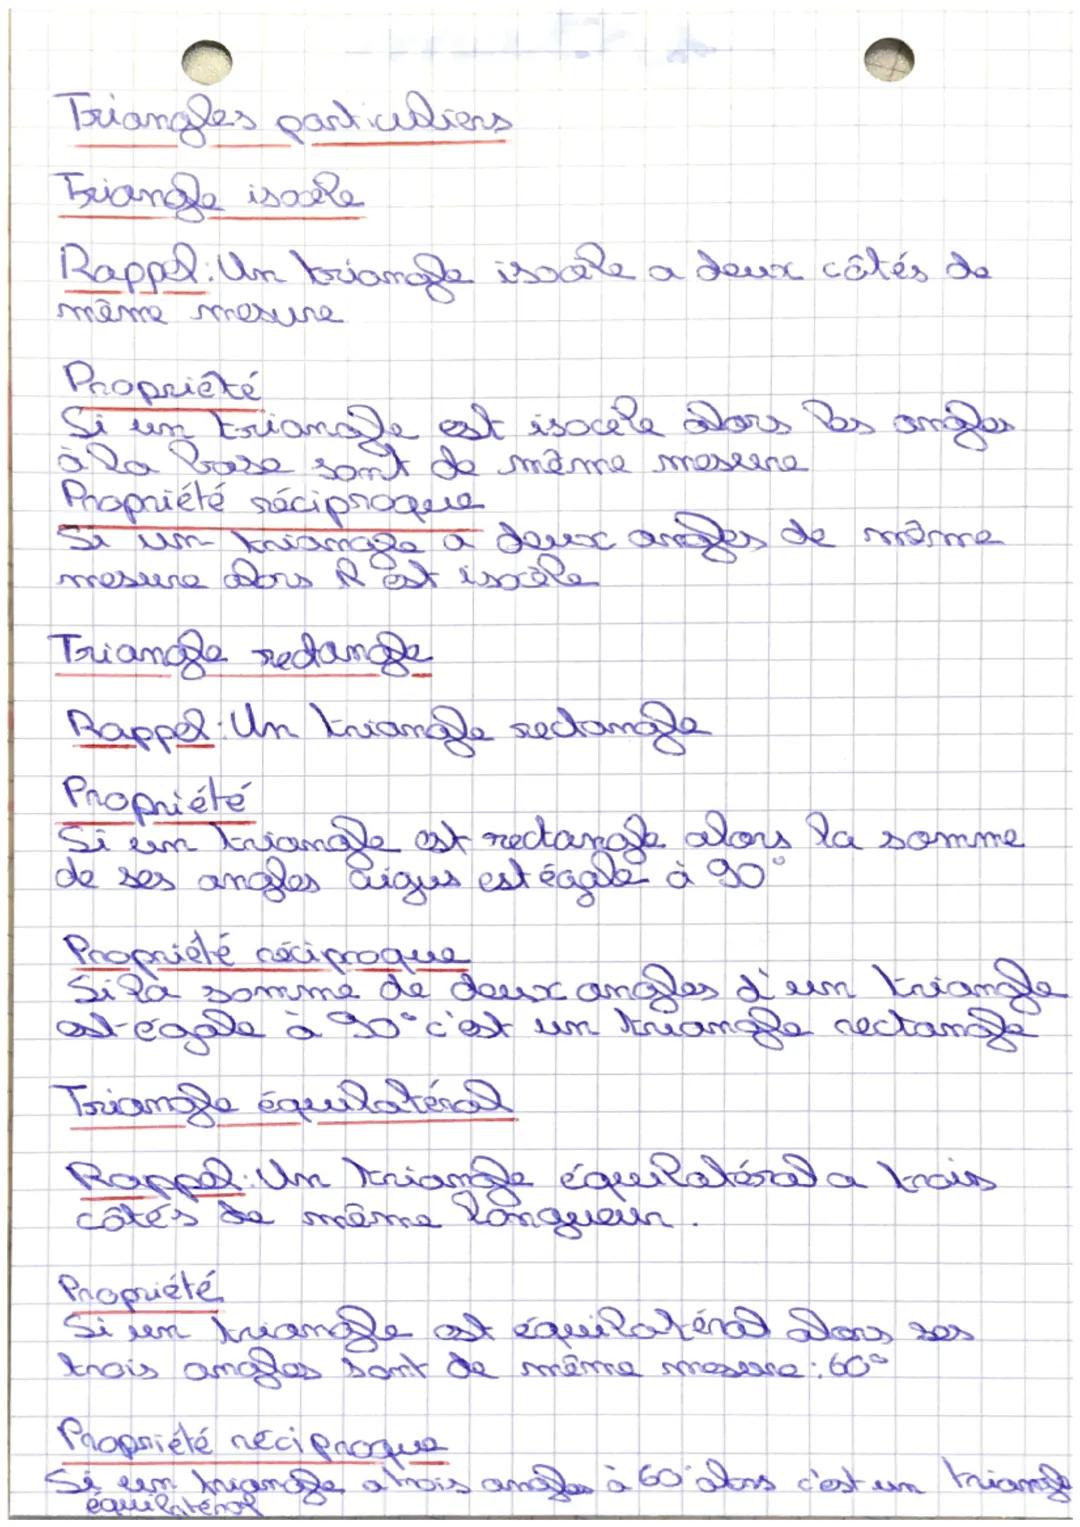 Triangles particuliers
Triangle isocèle
Rappel: Un triangle isocèle a deux côtés de
même mesure
Propriété
Si un triangle est isocèle alors les angles
à la base sont de même mesure
Propriété réciproque
Si un triangle a deux angles de même
mesure alors il est isocèle
Triangle rectangle
Rappel: Un triangle rectangle
Propriété
Si un triangle est rectangle alors la somme
de ses angles aigus est égale à 90°
Propriété réciproque
Si la somme de deux angles d'un triangle
est égale à 90° c'est un triangle rectangle
Triangle équilatéral
Rappel: Un triangle équilatéral a trois
côtés de même longueur.
Propriété
Si un triangle est équilatéral alors ses
trois angles sont de même mesure: 60°
Propriété réciproque
Si un triangle a trois angles à 60° alors c'est un triangle
équilatéral